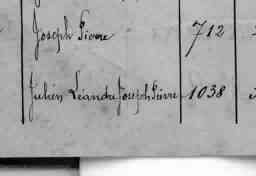 Joseph Pierre 712
Julien Léandre Joseph Pierre 1038